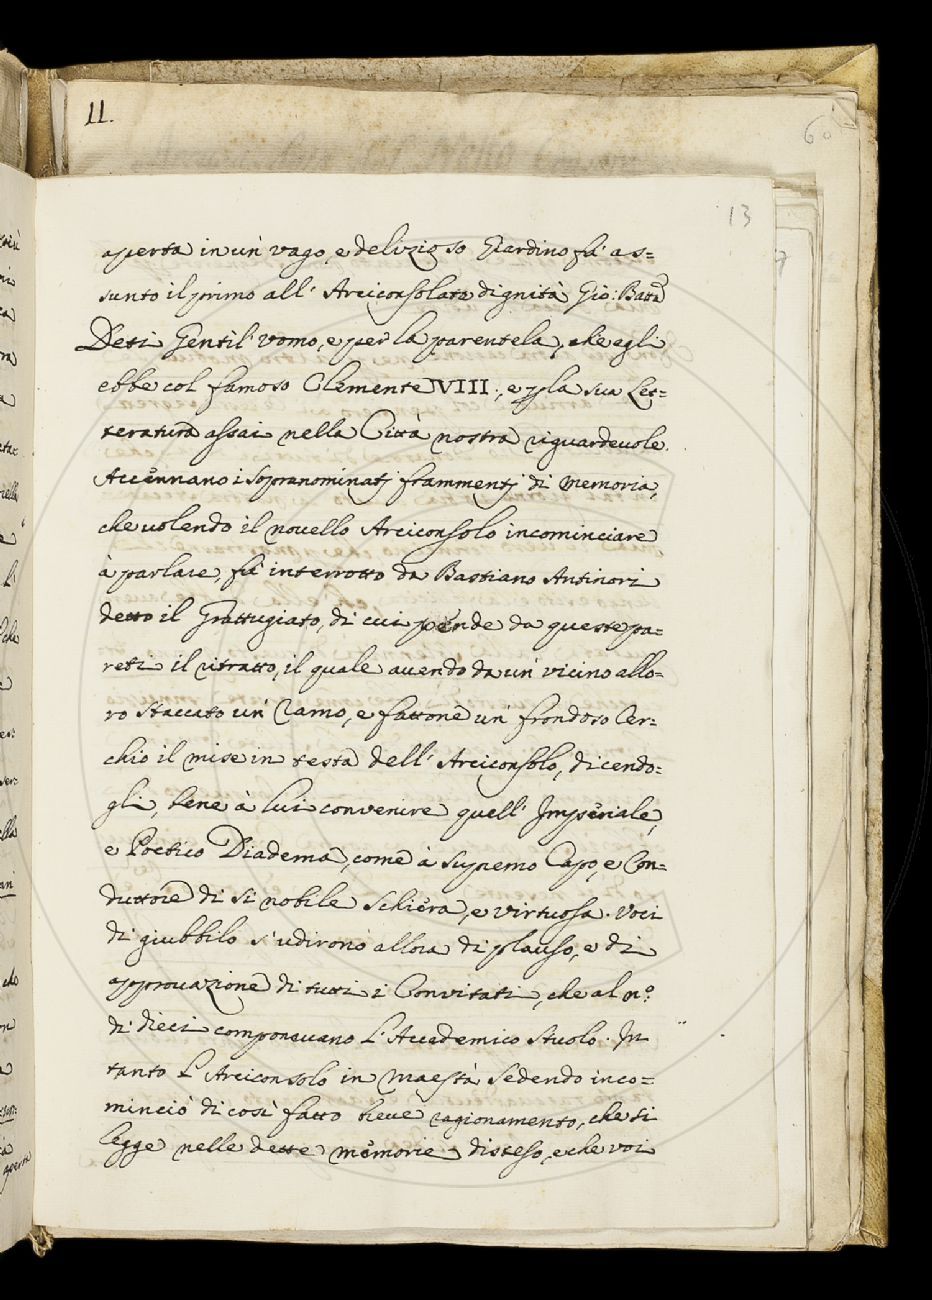 11.
60
13
aperta in un' vago, e delizioso Giardino fù as=
sunto il primo all' Arciconsolata dignità Gio: Batta
Deti Gentil' vomo, e per la parentela, che egli
ebbe col famoso Clemente VIII:, e p la sua Let=
teratura assai nella Città nostra riguardevole.
Accennano i sopranominatj frammentj di memoria,
che volendo il novello Arciconsolo incominciare
à parlare, fù interrotto da Bastiano Antinori
detto il Grattugiato, di cui pende da queste pa=
reti il ritratto, il quale avendo da un' vicino allo=
ro staccato un' ramo, e fattone un' frondoso Cer=
chio il mise in testa dell' Arciconsolo, dicendo=
gli, bene à lui convenire quell' Imperiale,
e Poetico Diadema, come à supremo Capo, e Con=
duttore di si nobile schiera, e virtuosa. Voci
di giubbilo s' udirono allora di plauso, e di
approvazione di tutti i Convitati, che al n.º
di dieci componevano L' Accademico Stuolo. In
tanto L' Arciconsolo in maestà sedendo inco=
minciò di così fatto breve ragionamento, che si
legge nelle dette memorie disteso, e che voi